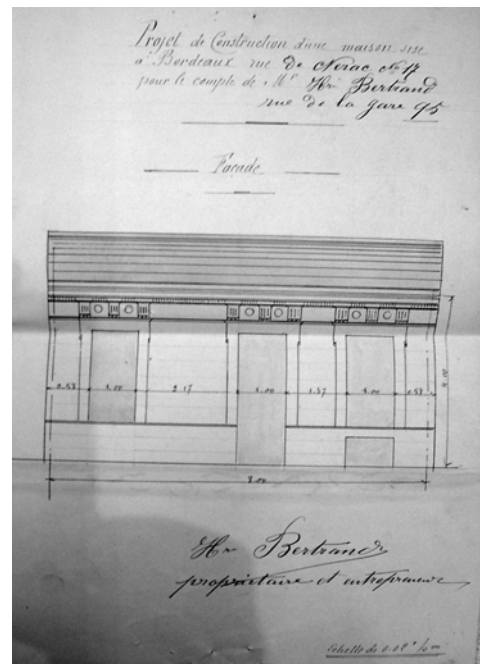 Projet de Construction d'une maison sise
à Bordeaux rue de Nérac No 17
pour le compte de Mr Hri Bertrand
rue de la gare 95
Façade
0.53 1.00 2.17 1.00 1.57 1.00 0.53
4.00
8.00
Hri Bertrand
propriétaire et entrepreneur
Echelle de 0.02c